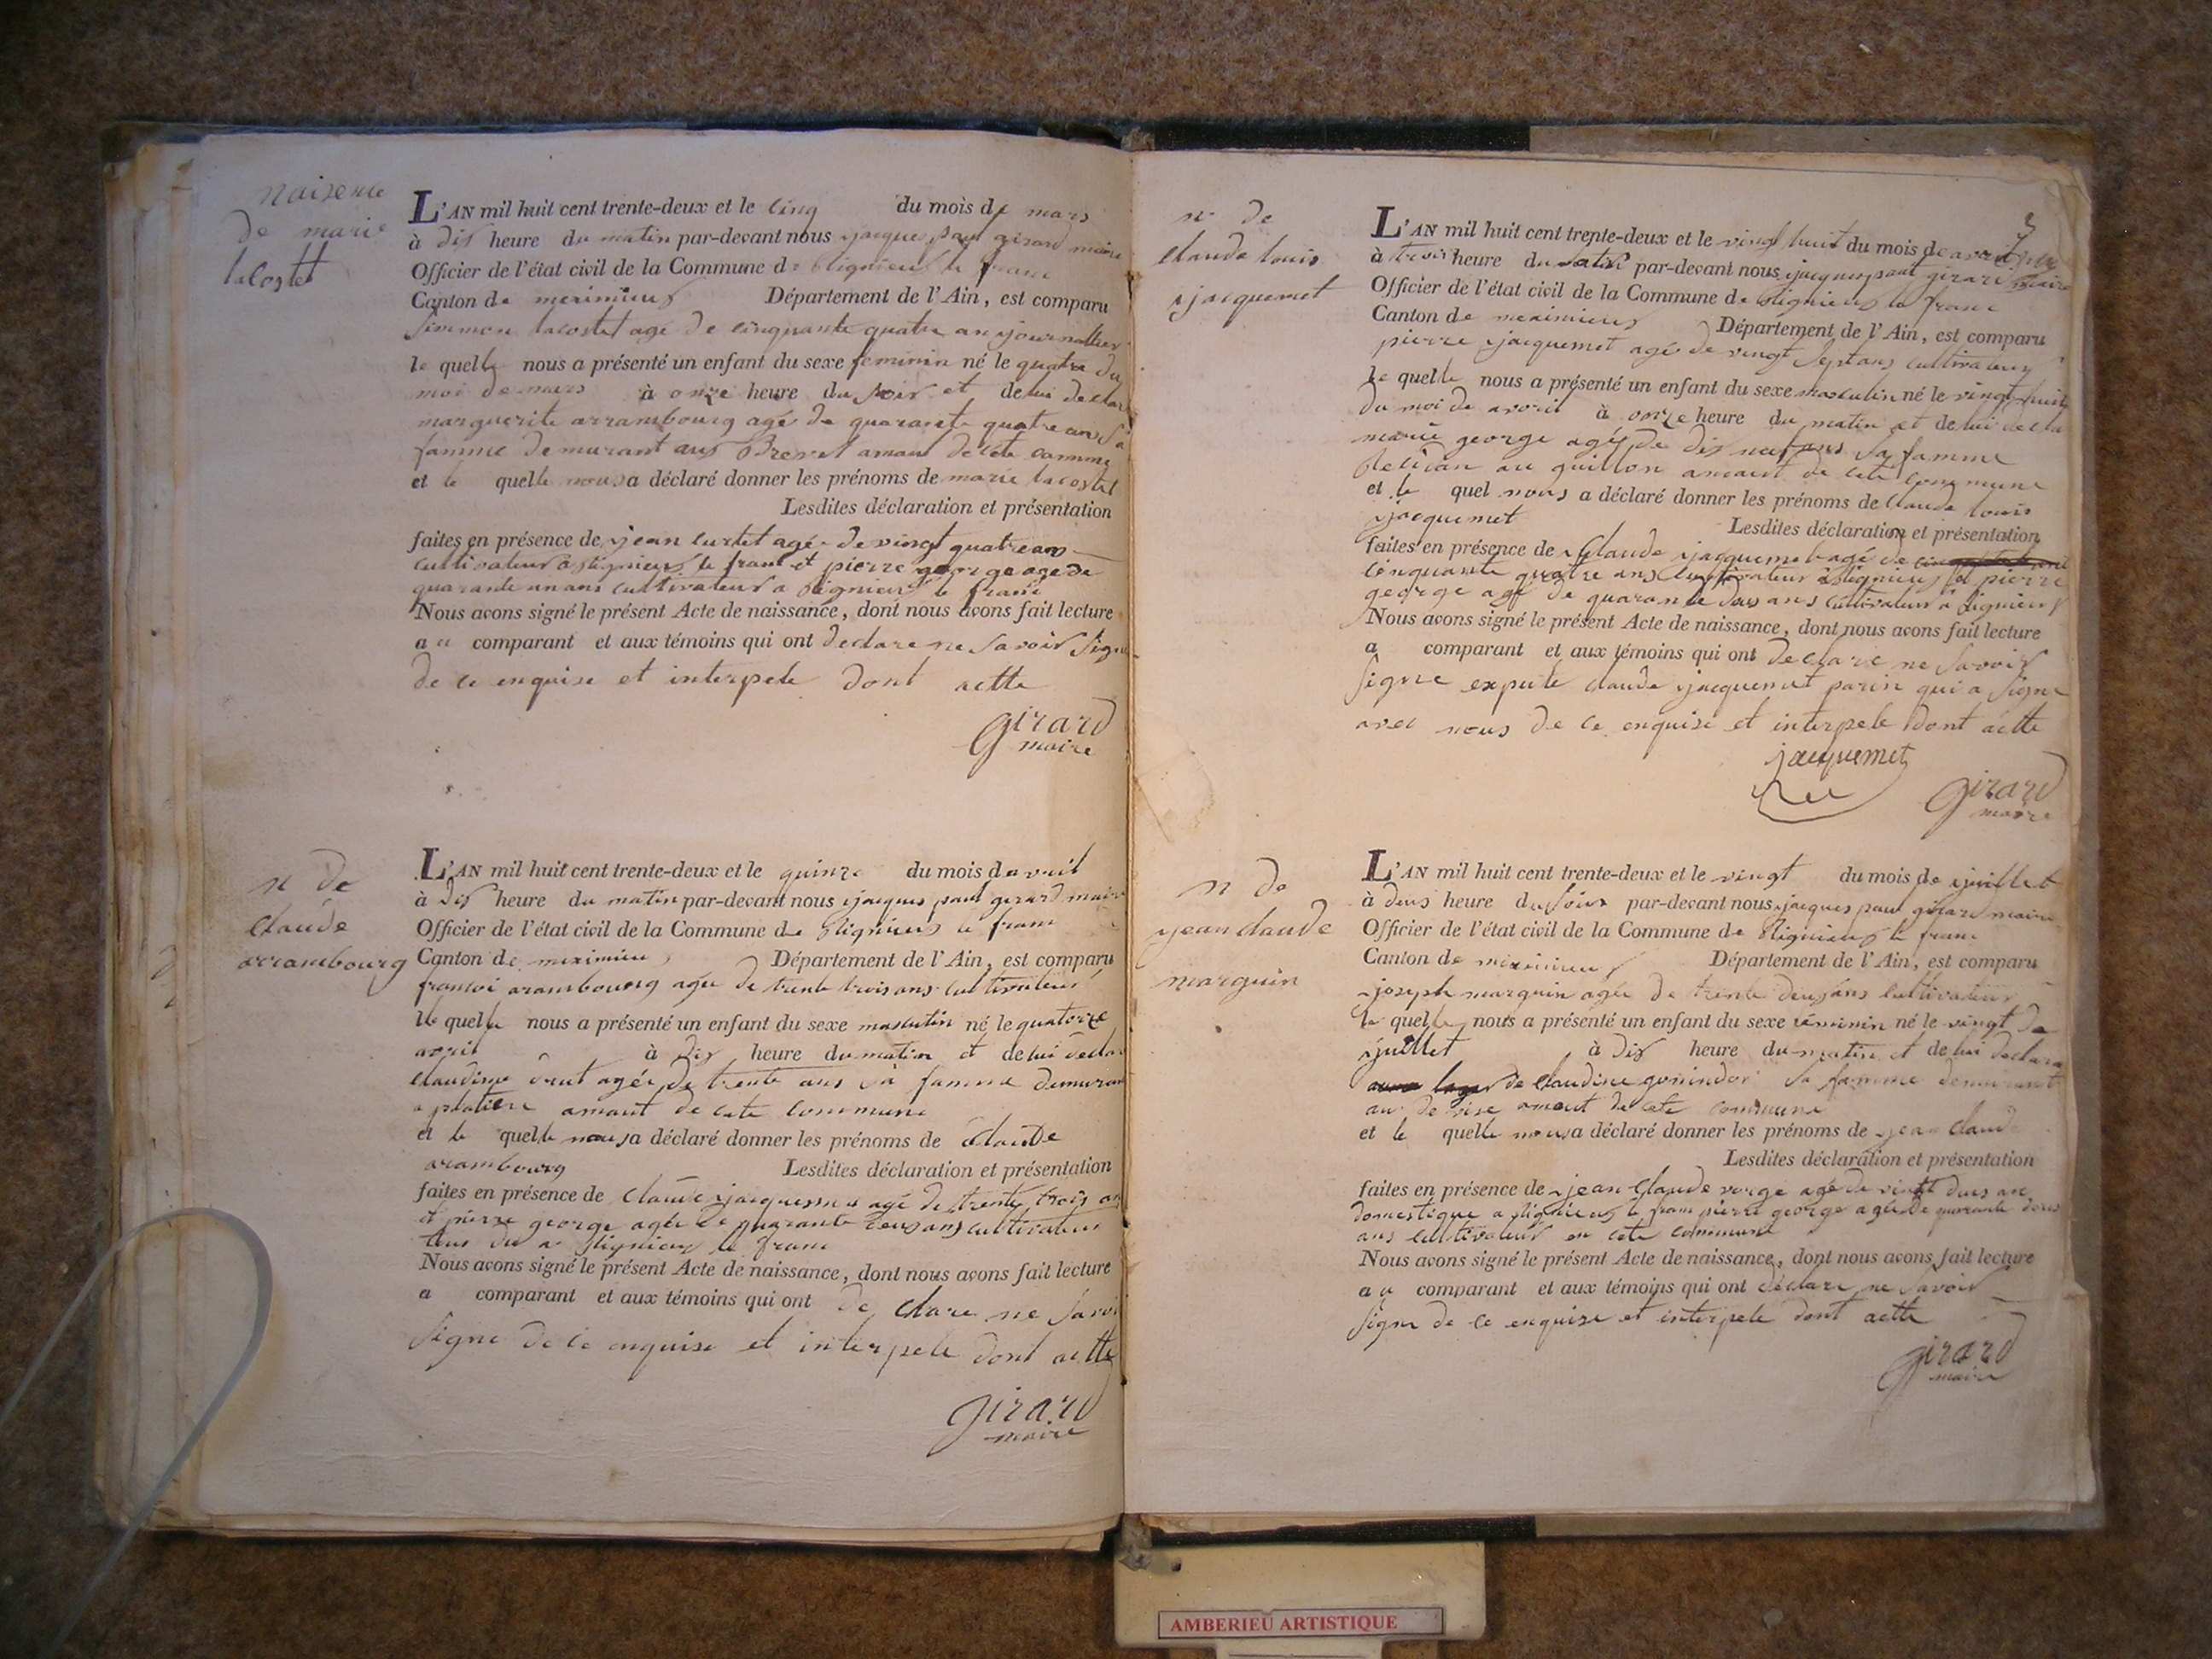 naisence
de marie
lacostet
L'AN mil huit cent trente-deux et le cinq du mois de mars
à dix heure du matin par-devant nous jacques paul girard maire
Officier de l'état civil de la Commune de blignieux le franc
Canton de meximieux Département de l'Ain, est comparu
simmon lacostet agé de cinquante quatre an journallier
le quelle nous a présenté un enfant du sexe feminin né le quatre du
moi de mars à onze heure du soir et de lui declar
marguerite arrambourg agé de quarante quatre ans sa
famme demurant aux amant de cete comme
et le quelle nous a déclaré donner les prénoms de marie lacostet
Lesdites déclaration et présentation
faites en présence de jean curtet agé de vingt quatre ans
cultivateur a bligneux le franc et pierre george age de
quarante un ans cultivateur a bligneux le franc
Nous avons signé le présent Acte de naissance, dont nous avons fait lecture
a u comparant et aux témoins qui ont declare ne savoir signe
de ce enquise et interpele dont actte
girard
maire
n de
claude
arrambourg
L'AN mil huit cent trente-deux et le quinze du mois d avril
à dix heure du matin par-devant nous jacques paul girard maire
Officier de l'état civil de la Commune de bligneux le franc
Canton de meximieu Département de l'Ain, est comparu
francoi arambourg agée de trente trois ans cultivateur
le quelle nous a présenté un enfant du sexe masculin né le quatorze
avril à dix heure du matin et de lui declar
claudine agée de trente ans sa famme demuran
a platiere amant de cete commune
et le quelle nous a déclaré donner les prénoms de claude
arambourg Lesdites déclaration et présentation
faites en présence de claude agé de trente trois an
et pierre george agée de quarante deux ans cultivateur
tous du a bligneux le franc
Nous avons signé le présent Acte de naissance, dont nous avons fait lecture
a comparant et aux témoins qui ont de clare ne savoi
signe de ce enquise et interpele dont actte
girard
maire
3
n de
claude louis
jacquemet
L'AN mil huit cent trente-deux et le vingt huit du mois de avril
à trois heure du par-devant nous jacques paul girard maire
Officier de l'état civil de la Commune de bligneux le franc
Canton de meximieux Département de l'Ain, est comparu
pierre jacquemet agé de vingt sept ans cultivateur
le quelle nous a présenté un enfant du sexe masculin né le vingt huit
du moi de avril à onze heure du matin et de lui decla
marie george agé de dix neuf ans sa famme
au guillon amant de cete commune
et le quel nous a déclaré donner les prénoms de claude louis
jacquemet Lesdites déclaration et présentation
faites en présence de claude jacquemet agé de
cinquante quatre ans cultivateur a bligneux et pierre
george agé de quarante deux ans cultivateur a bligneux
Nous avons signé le présent Acte de naissance, dont nous avons fait lecture
a comparant et aux témoins qui ont declare ne savoir
signe claude jacquemet parin qui a signe
avec nous de ce enquise et interpele dont actte
jacquemet
girard
maire
n de
jean claude
marguin
L'AN mil huit cent trente-deux et le vingt du mois de juillet
à deux heure du soir par-devant nous jacques paul girard maire
Officier de l'état civil de la Commune de bligneux le franc
Canton de meximieux Département de l'Ain, est comparu
joseph marguin agée de trente deux ans cultivateur
le quelle nous a présenté un enfant du sexe féminin né le vingt de
juillet à dix heure du matin et de lui declara
de claudine sa famme demurant
au amant de cete commune
et le quelle nous a déclaré donner les prénoms de jean claude
Lesdites déclaration et présentation
faites en présence de jean claude vorge agé de vingt deux an
domestique a bligneux le franc pierre george agée de quarante deux
ans cultivateur en cete commune
Nous avons signé le présent Acte de naissance, dont nous avons fait lecture
a u comparant et aux témoins qui ont déclare ne savoir
signe de ce enquise et interpele dont actte
girard
maire
AMBERIEU ARTISTIQUE